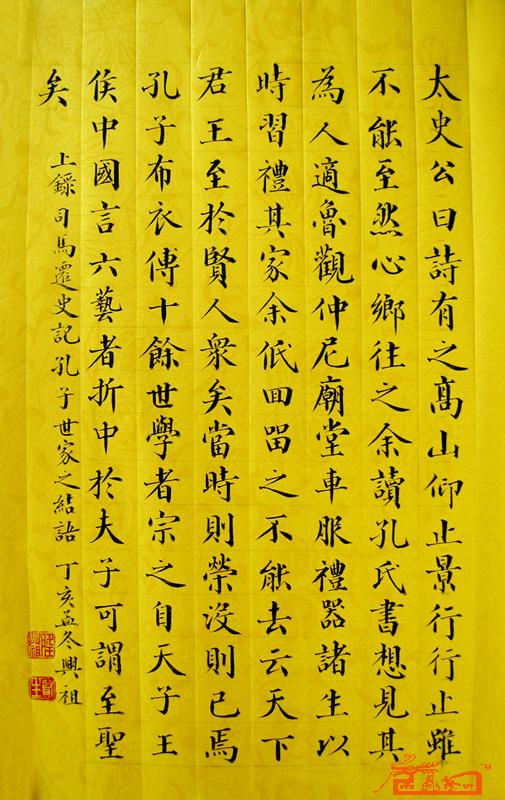 太史公曰詩有之高山仰止景行行止雖
不能至然心鄉往之余讀孔氏書想見其
為人適魯觀仲尼廟堂車服禮器諸生以
時習禮其家余低回畱之不能去云天下
君王至於賢人眾矣當時則榮沒則已焉
孔子布衣傅十餘世學者宗之自天子王
侯中國言六藝者折中於夫子可謂至聖
矣
上錄司馬遷史記孔子世家之結語 丁亥孟冬興祖